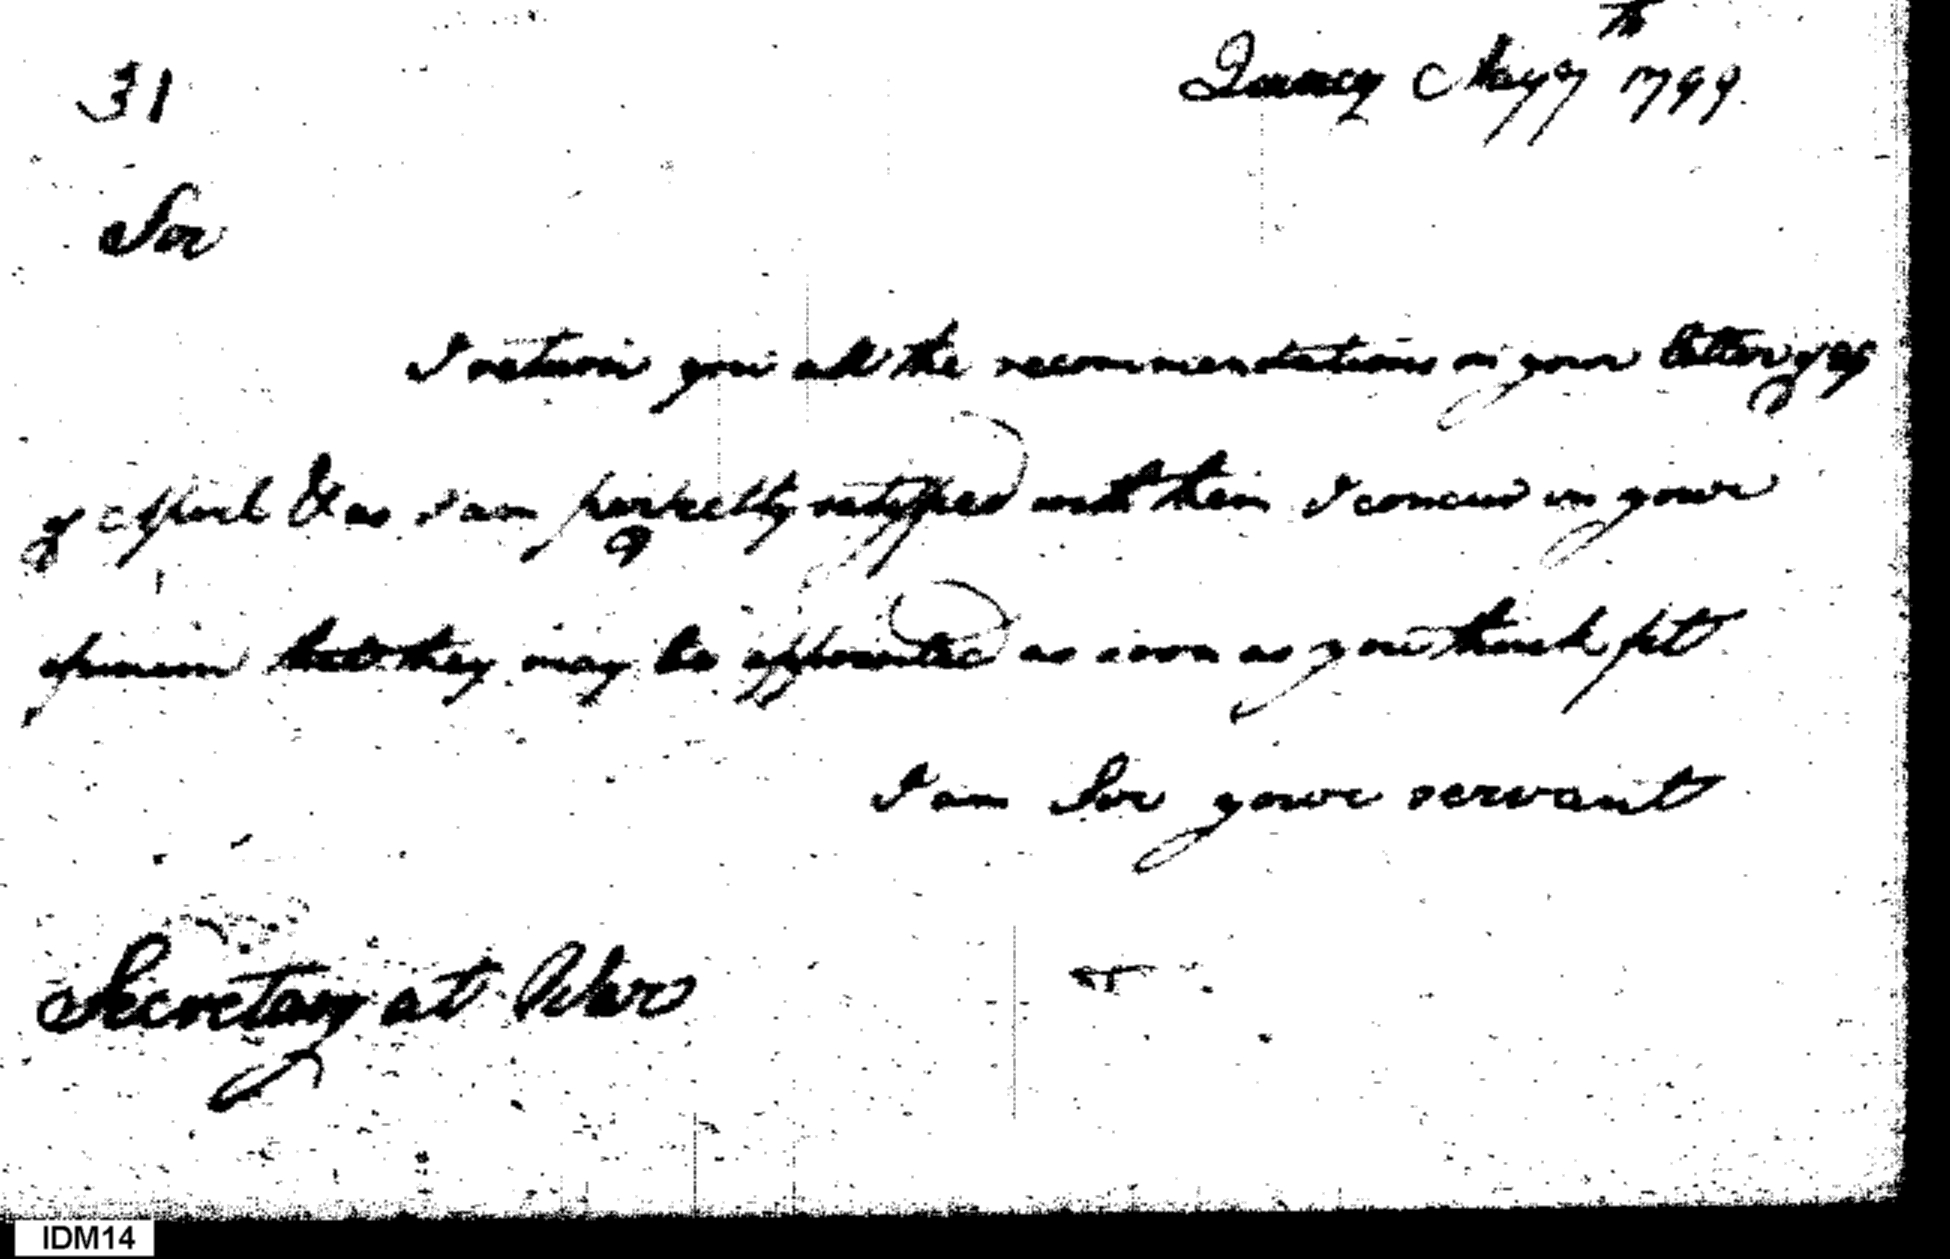 31
Quincy May 7th 1799.
Sir
I return you all the recommendations in your letter of
of April & as I am perfectly satisfied with them I concur in your
opinion that they may be appointed as soon as you think fit
I am Sir your servant
Secretary at War
IDM14